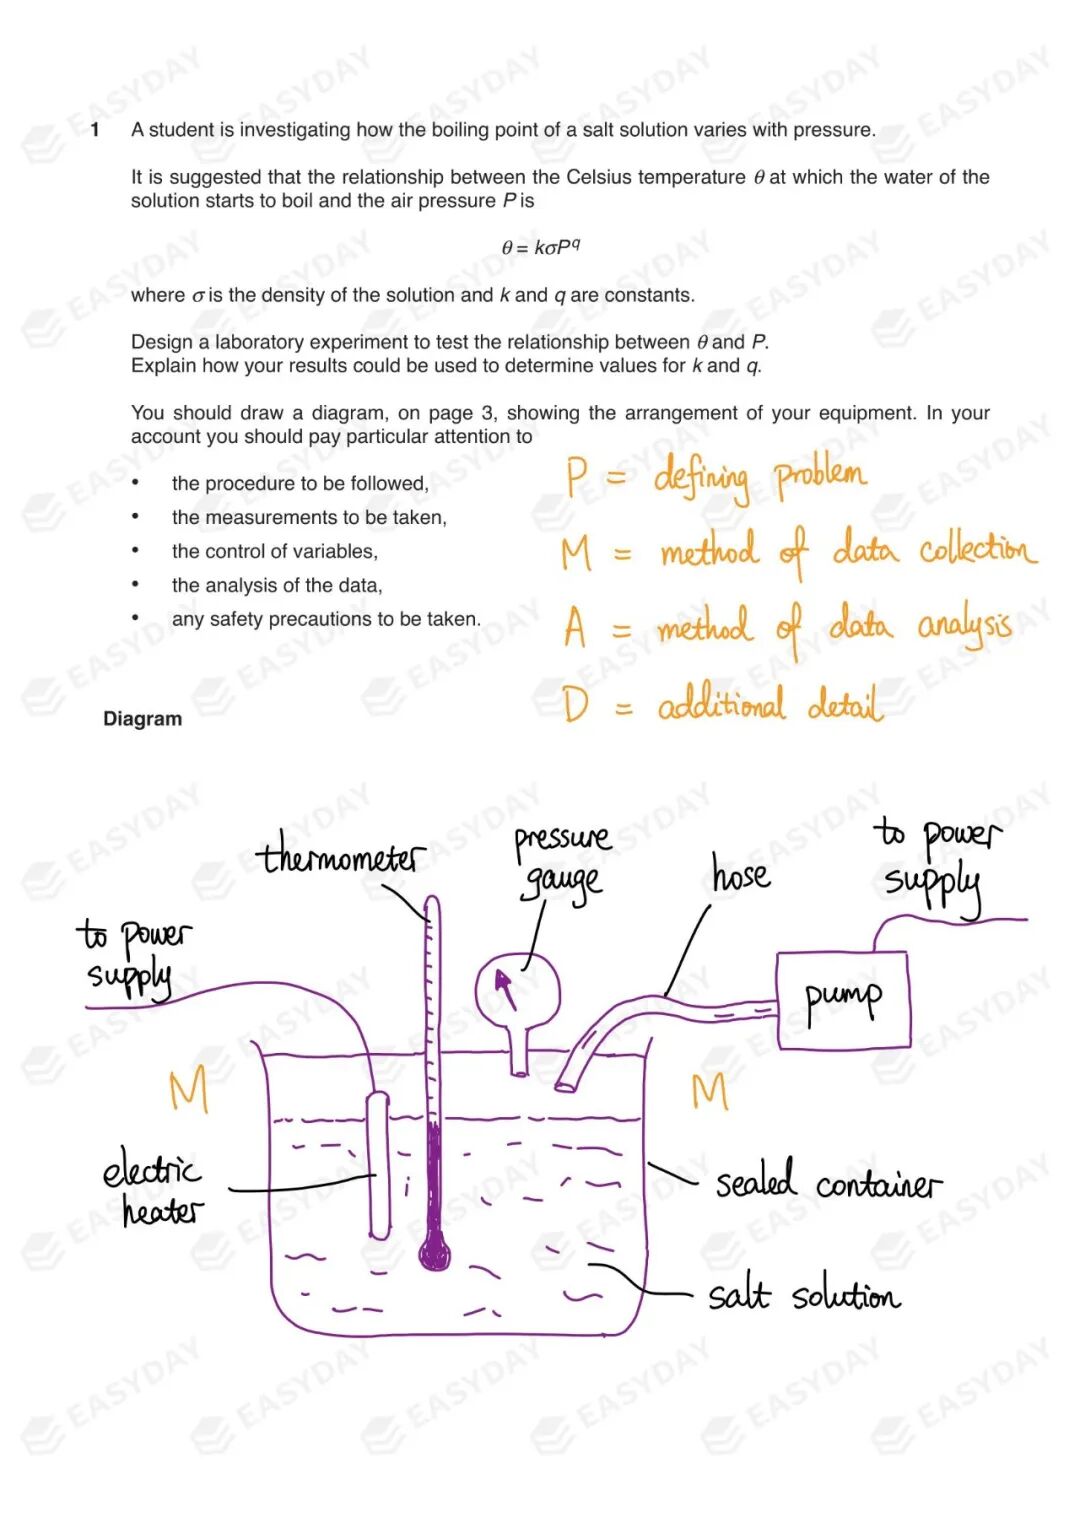 1 A student is investigating how the boiling point of a salt solution varies with pressure.
It is suggested that the relationship between the Celsius temperature θ at which the water of the
solution starts to boil and the air pressure P is
θ = kσP^q
where σ is the density of the solution and k and q are constants.
Design a laboratory experiment to test the relationship between θ and P.
Explain how your results could be used to determine values for k and q.
You should draw a diagram, on page 3, showing the arrangement of your equipment. In your
account you should pay particular attention to
• the procedure to be followed,
• the measurements to be taken,
• the control of variables,
• the analysis of the data,
• any safety precautions to be taken.
P = defining problem
M = method of data collection
A = method of data analysis
D = additional detail
Diagram
thermometer
pressure
gauge
hose
to power
supply
to power
supply
pump
M
M
electric
heater
sealed container
salt solution
EASYDAY